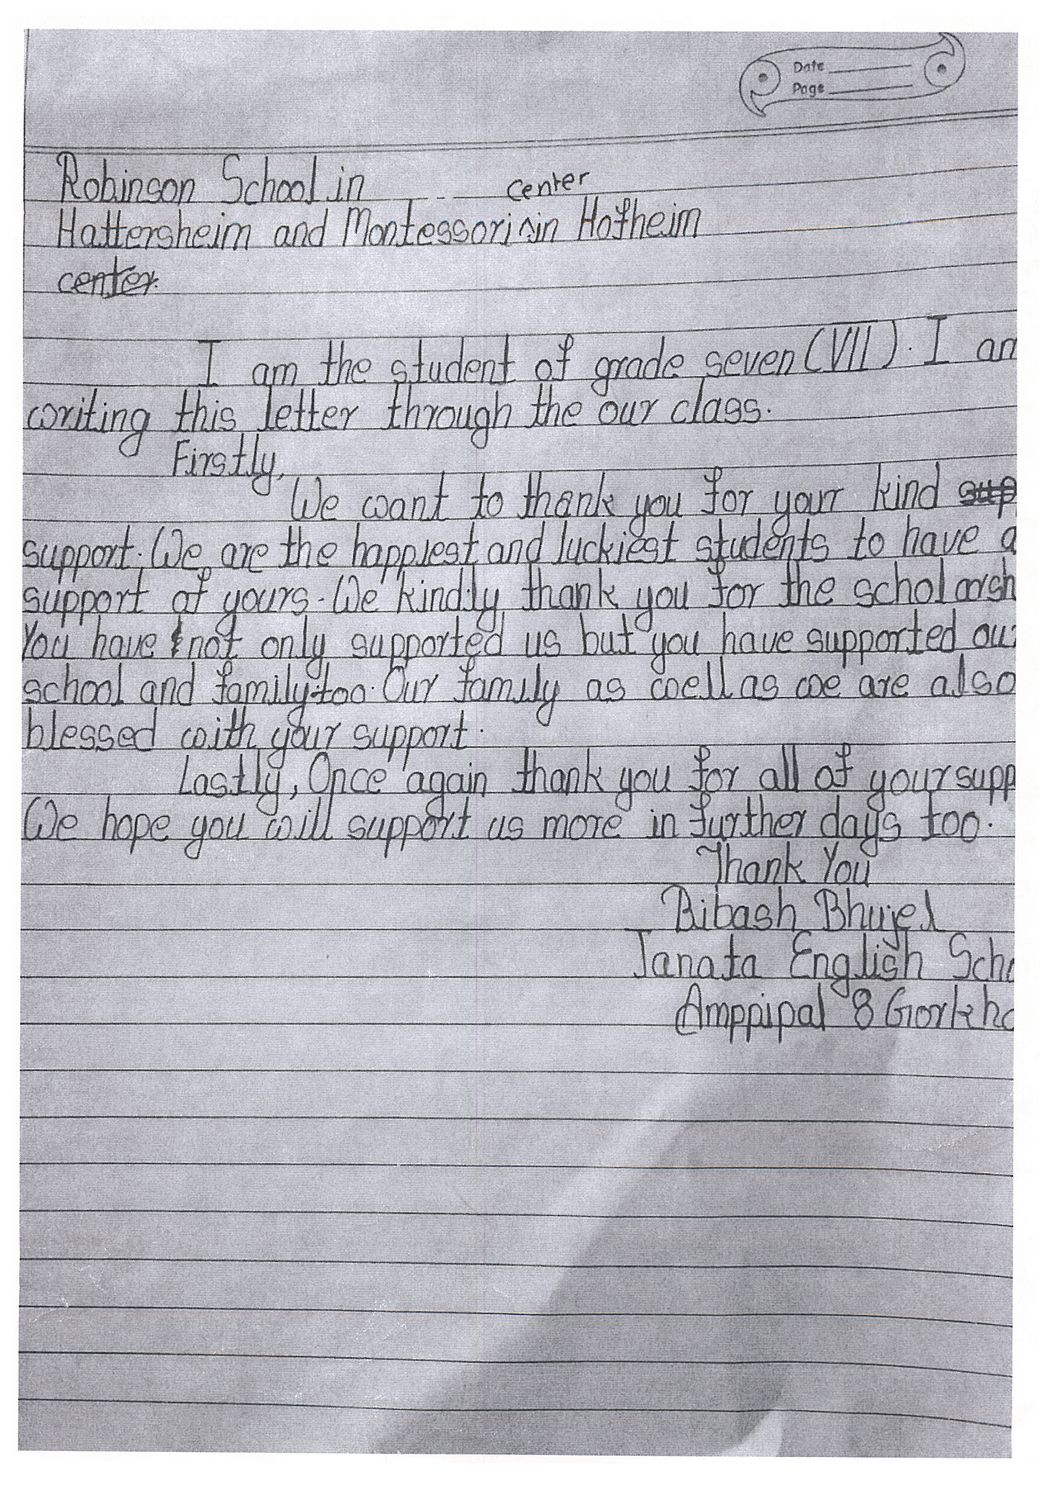 Date
Page
Robinson School in
center
Hattersheim and Montessori in Hofheim
center.
I am the student of grade seven (VII). I am
writing this letter through the our class.
Firstly,
We want to thank you for your kind sup
support. We are the happiest and luckiest students to have a
support of yours. We kindly thank you for the scholarsh
You have not only supported us but you have supported our
school and family too. Our family as well as we are also
blessed with your support.
Lastly, Once again thank you for all of your supp
We hope you will support us more in further days too.
Thank You
Bibash Bhujel
Janata English Scho
Amppipal 8 Gorkha